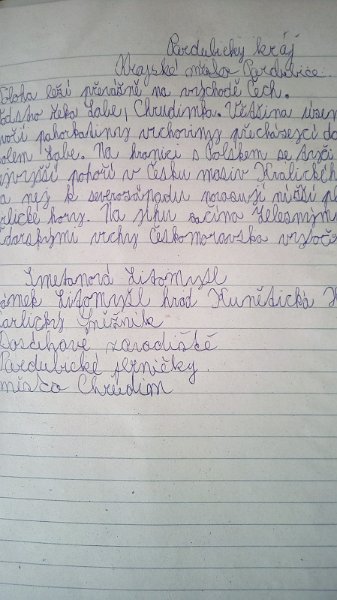 Pardubický kraj
Krajské město Pardubice.
oloha leží převážně na východě Čech.
řeka Labe, Chrudimka. Většina územ
oří pahorkatiny vrchoviny přicházející do
olem Labe. Na hranici s Polskem se tyčí
vyšší pohoří v Česku masiv Králických
a něž k severozápadu navazují nižší
rlické hory. Na jihu začíná Železnými
ďárskými vrchy Českomoravská vrchoč
Smetanová Litomyšl
ámek Litomyšl hrad Kunětická H
ralický Sněžník
Dostihové závodiště
Pardubické perníčky
město Chrudim